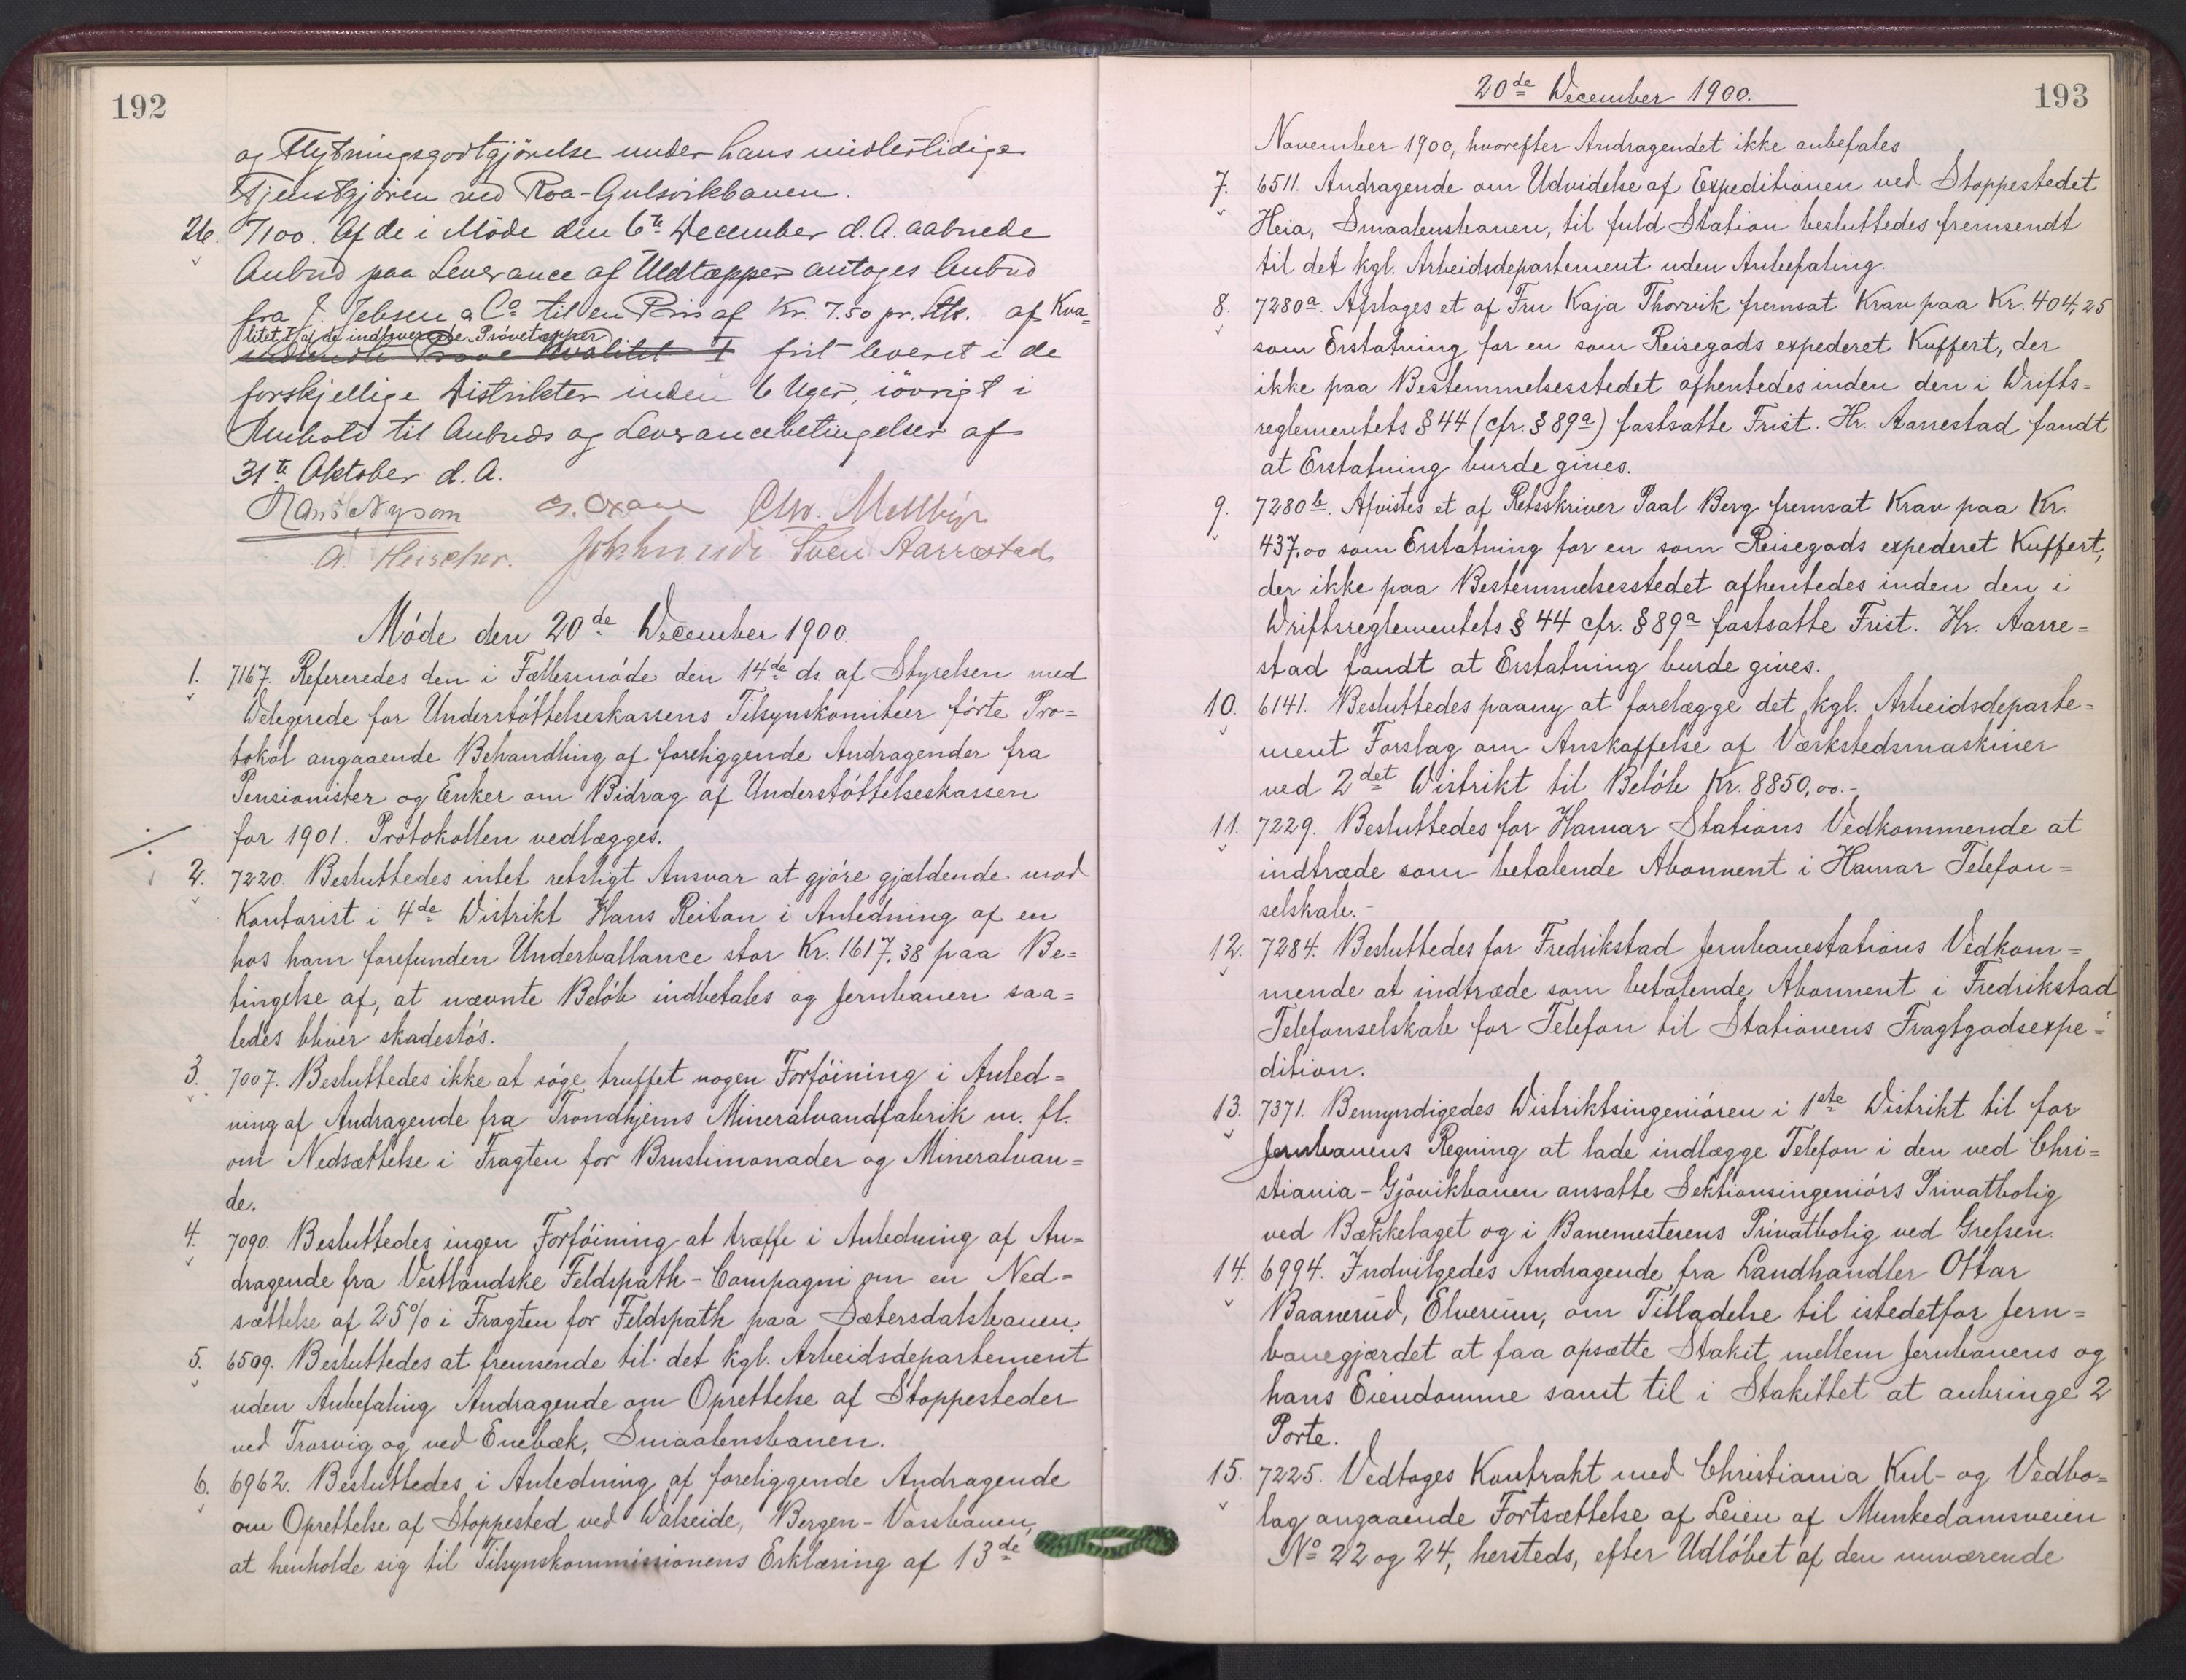 192
og Flytningsgodtgjörelse under hans midlertidige
Tjenstgjören ved Roa-Gulsvikbanen.
26. 7100. Af de i Möde den 6te December d. A. aabnede
Anbud paa Leverance af Uldtæpper antoges Anbud
fra J. Jebsen & Co til en Pris af Kr. 7.50 pr. Stk. af Kva=
litet I af de indleverede Prövetæpper
indsendte Prøve Kvalitet I frit leveret i de
forskjellige Distrikter inden 6 Uger, iövrigt i
Henhold til Anbuds og Leverancebetingelser af
31te Oktober d. A.
Hans Nysom Chr. Mellbye
A. Fleischer. Sven Aarrestad
Möde den 20de December 1900.
1. 7167. Refereredes den i Fællesmöde den 14de ds. af Styrelsen med
Delegerede for Understöttelseskassens Tilsynskomiteer förte Pro=
tokol angaaende Behandling af foreliggende Andragender fra
Pensionister og Enker om Bidrag af Understöttelseskassen
for 1901. Protokollen vedlægges.
2. 7220. Besluttedes intet retsligt Ansvar at gjöre gjældende mod
Kontorist i 4de Distrikt Hans Reitan i Anledning af en
hos ham forefunden Underballance stor Kr. 1617,38 paa Be=
tingelse af, at nævnte Belöb indbetales og Jernbanen saa=
ledes bliver skadeslös.
3. 7007. Besluttedes ikke at söge truffet nogen Forföining i Anled=
ning af Andragende fra Trondhjems Mineralvandfabrik m. fl.
om Nedsættelse i Fragten for Bruslimonader og Mineralvan=
de.
4. 7090. Besluttedes ingen Forföining at træffe i Anledning af An=
dragende fra Vestlandske Feldspath-Compagni om en Ned=
sættelse af 25% i Fragten for Feldspath paa Sætersdalsbanen.
5. 6509. Besluttedes at fremsende til det kgl. Arbeidsdepartement
uden Anbefaling Andragende om Oprettelse af Stoppesteder
ved Trosvig og ved Enebæk, Smaalensbanen.
6. 6962. Besluttedes i Anledning af foreliggende Andragende
om Oprettelse af Stoppested ved Dalseide, Bergen-Vossbanen,
at henholde sig til Tilsynskommissionens Erklæring af 13de
20de December 1900.
193
November 1900, hvorefter Andragendet ikke anbefales
7. 6511. Andragende om Udvidelse af Expeditionen ved Stoppestedet
Heia, Smaalensbanen, til fuld Station besluttedes fremsendt
til det kgl. Arbeidsdepartement uden Anbefaling.
8. 7280a. Afsloges et af Fru Kaja Thorvik fremsat Krav paa Kr. 404,25
som Erstatning for en som Reisegods expederet Kuffert, der
ikke paa Bestemmelsesstedet afhentedes inden den i Drifts=
reglementets § 44 (cfr. § 89a) fastsatte Frist. Hr. Aarrestad fandt
at Erstatning burde gives.
9. 7280b. Afvistes et af Retsskriver Paal Berg fremsat Krav paa Kr.
437,00 som Erstatning for en som Reisegods expederet Kuffert,
der ikke paa Bestemmelsesstedet afhentedes inden den i
Driftsreglementets § 44 cfr. § 89a fastsatte Frist. Hr. Aarre=
stad fandt at Erstatning burde gives.
10. 6141. Besluttedes paany at forelægge det kgl. Arbeidsdeparte=
ment Forslag om Anskaffelse af Værkstedsmaskiner
ved 2det Distrikt til Belöb Kr. 8850,00.-
11. 7229. Besluttedes for Hamar Stations Vedkommende at
indtræde som betalende Abonnent i Hamar Telefon=
selskab.-
12. 7284. Besluttedes for Fredrikstad Jernbanestations Vedkom=
mende at indtræde som betalende Abonnent i Fredrikstad
Telefonselskab for Telefon til Stationens Fragtgodsexpe=
dition.
13. 7371. Bemyndigedes Distriktsingeniören i 1ste Distrikt til for
Jernbanens Regning at lade indlægge Telefon i den ved Chri=
stiania-Gjövikbanen ansatte Sektionsingeniörs Privatbolig
ved Bækkelaget og i Banemesterens Privatbolig ved Grefsen.
14. 6994. Indvilgedes Andragende fra Landhandler Ottar
Baanerud, Elverum, om Tilladelse til istedetfor Jern=
banegjærdet at faa opsætte Stakit mellem Jernbanens og
hans Eiendomme samt til i Stakittet at anbringe 2
Porte.
15. 7225. Vedtoges Kontrakt med Christiania Kul- og Vedbo=
lag angaaende Fortsættelse af Leien af Munkedamsveien
No 22 og 24, hersteds, efter Udlöbet af den nuværende